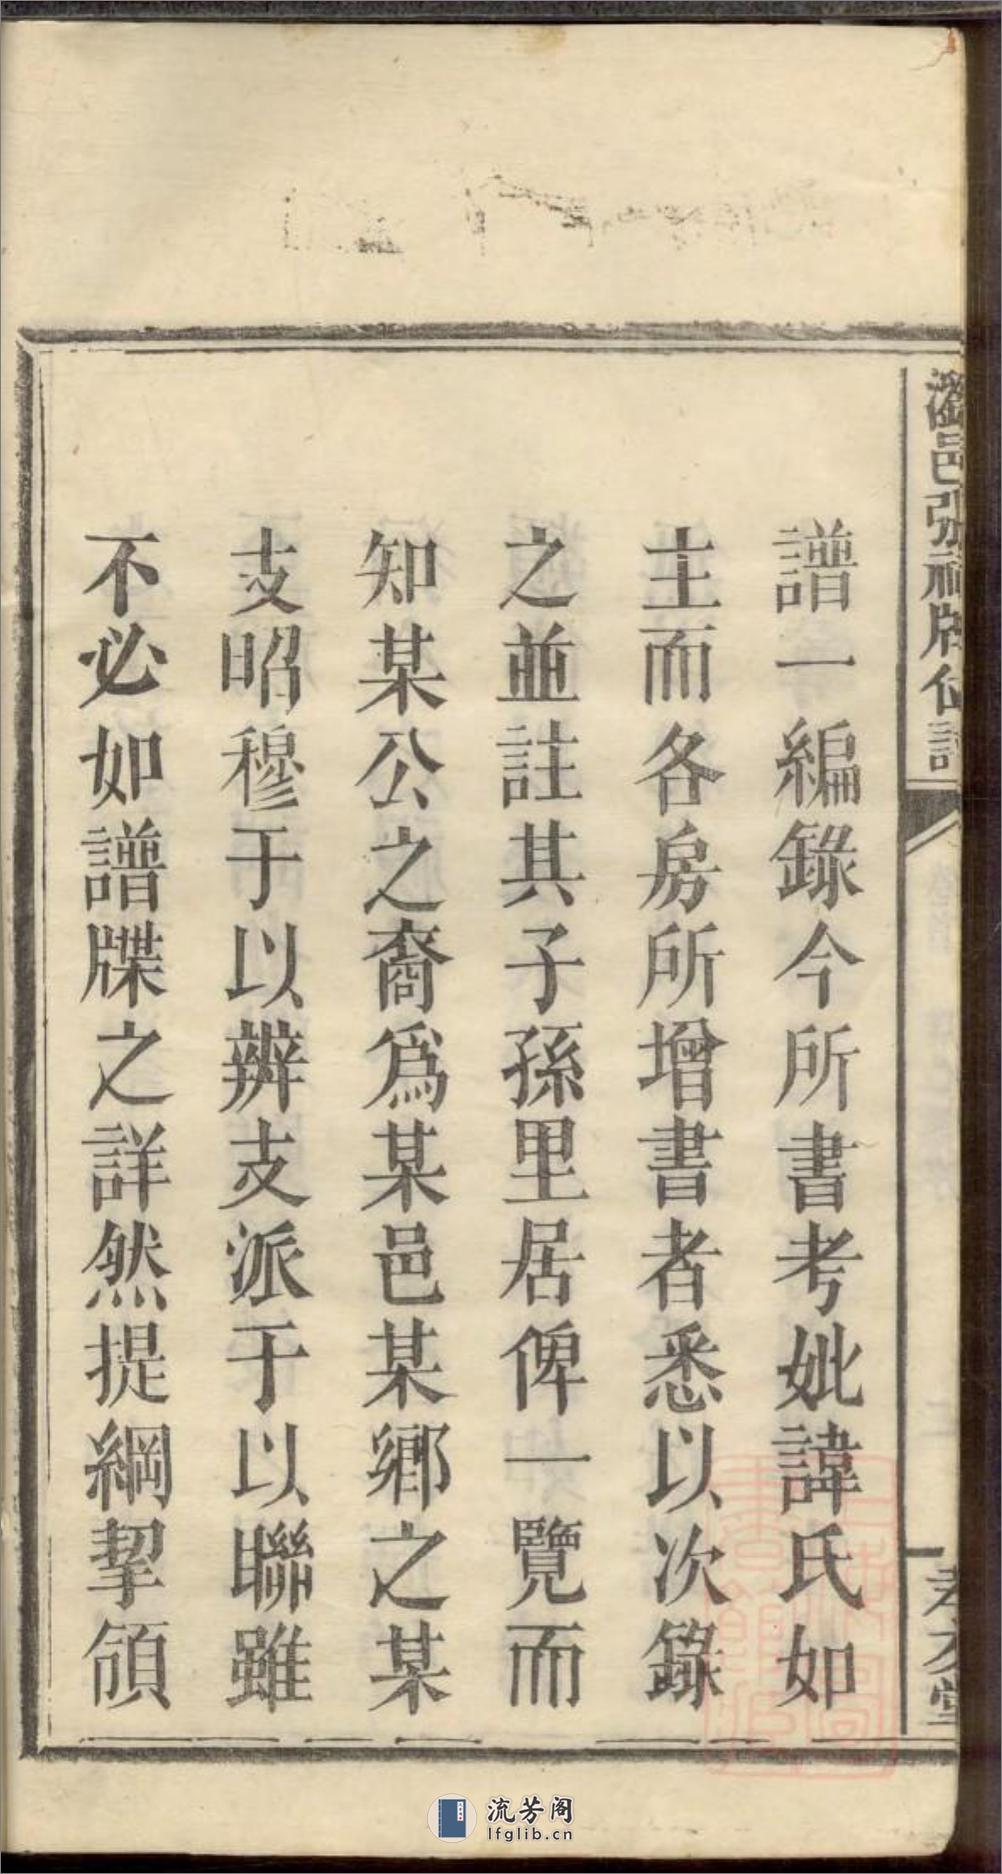 瀏邑張祠牌位譜
譜一編錄今所書考妣諱氏如
主而各房所增書者悉以次錄
之並註其子孫里居俾一覽而
知某公之裔爲某邑某鄉之某
支昭穆于以辨支派于以聯雖
不必如譜牒之詳然提綱挈領
流芳阁
lfglib.cn